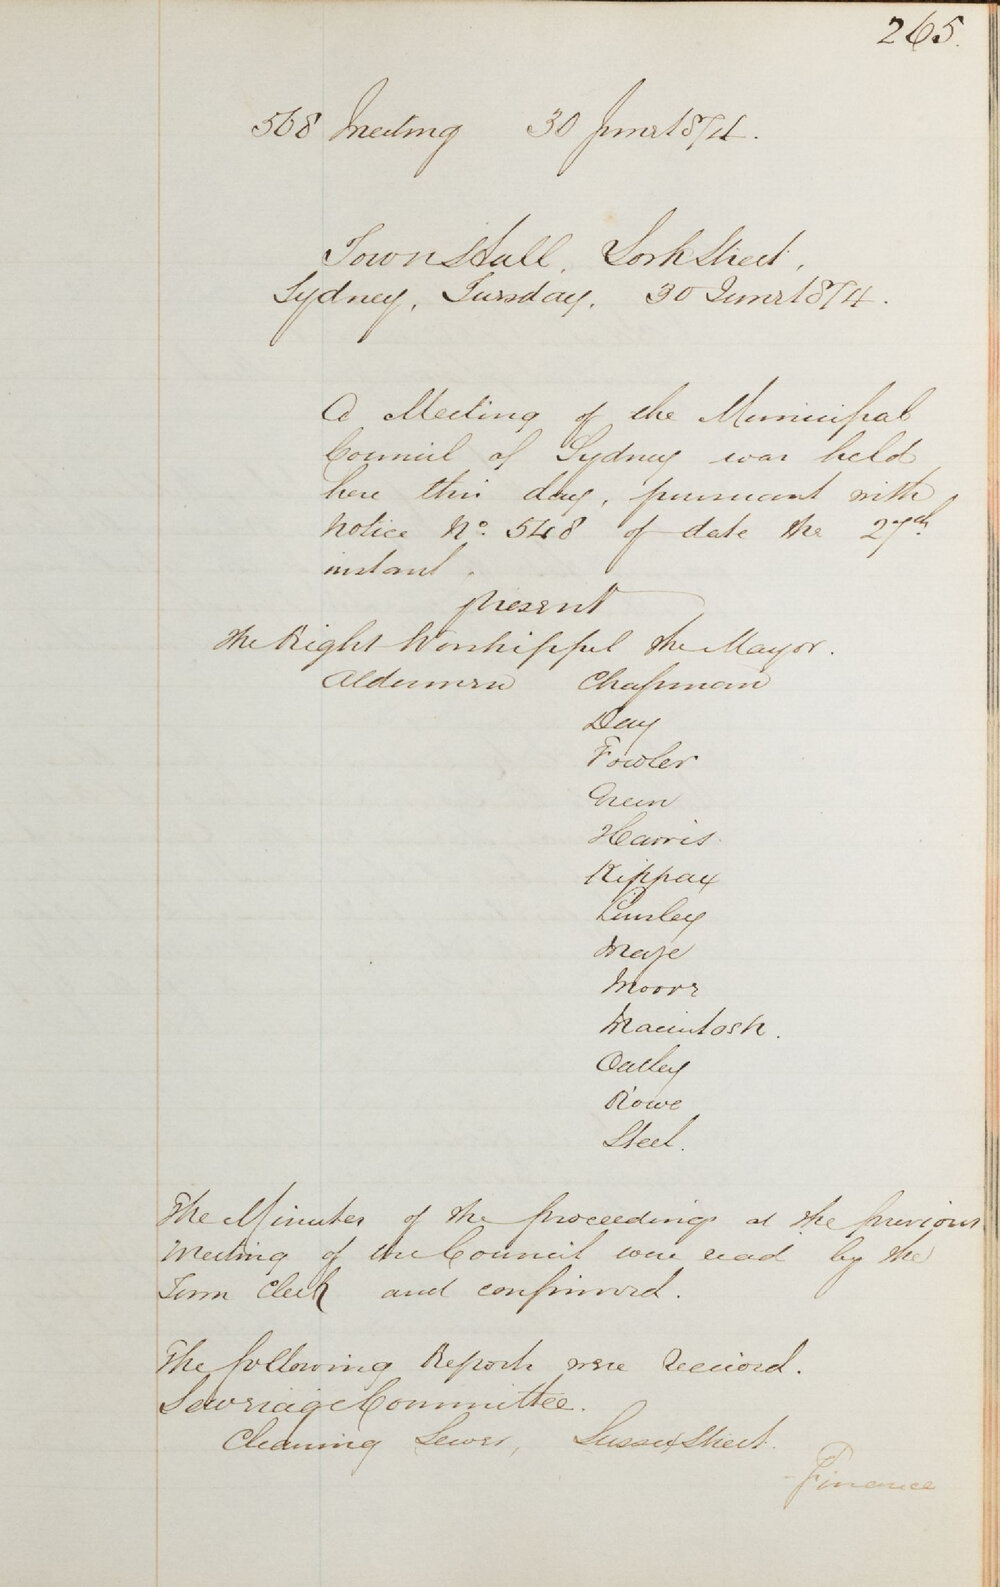 265.
568 Meeting 30 June 1874.
Town Hall, York Street,
Sydney, Tuesday, 30 June 1874.
A Meeting of the Municipal
Council of Sydney was held
here this day, pursuant with
Notice No. 548 of date the 27th
instant.
present
The Right Worshipful the Mayor.
Aldermen Chapman
Day
Fowler
Green
Harris
Kippax
Linsley
Maze
Moore
Macintosh.
Oatley
Rowe
Steel.
The Minutes of the proceedings at the previous
Meeting of the Council were read by the
Town Clerk and confirmed.
The following Reports were received.
Sewerage Committee.
Cleaning Sewer, Sussex Street.
Finance